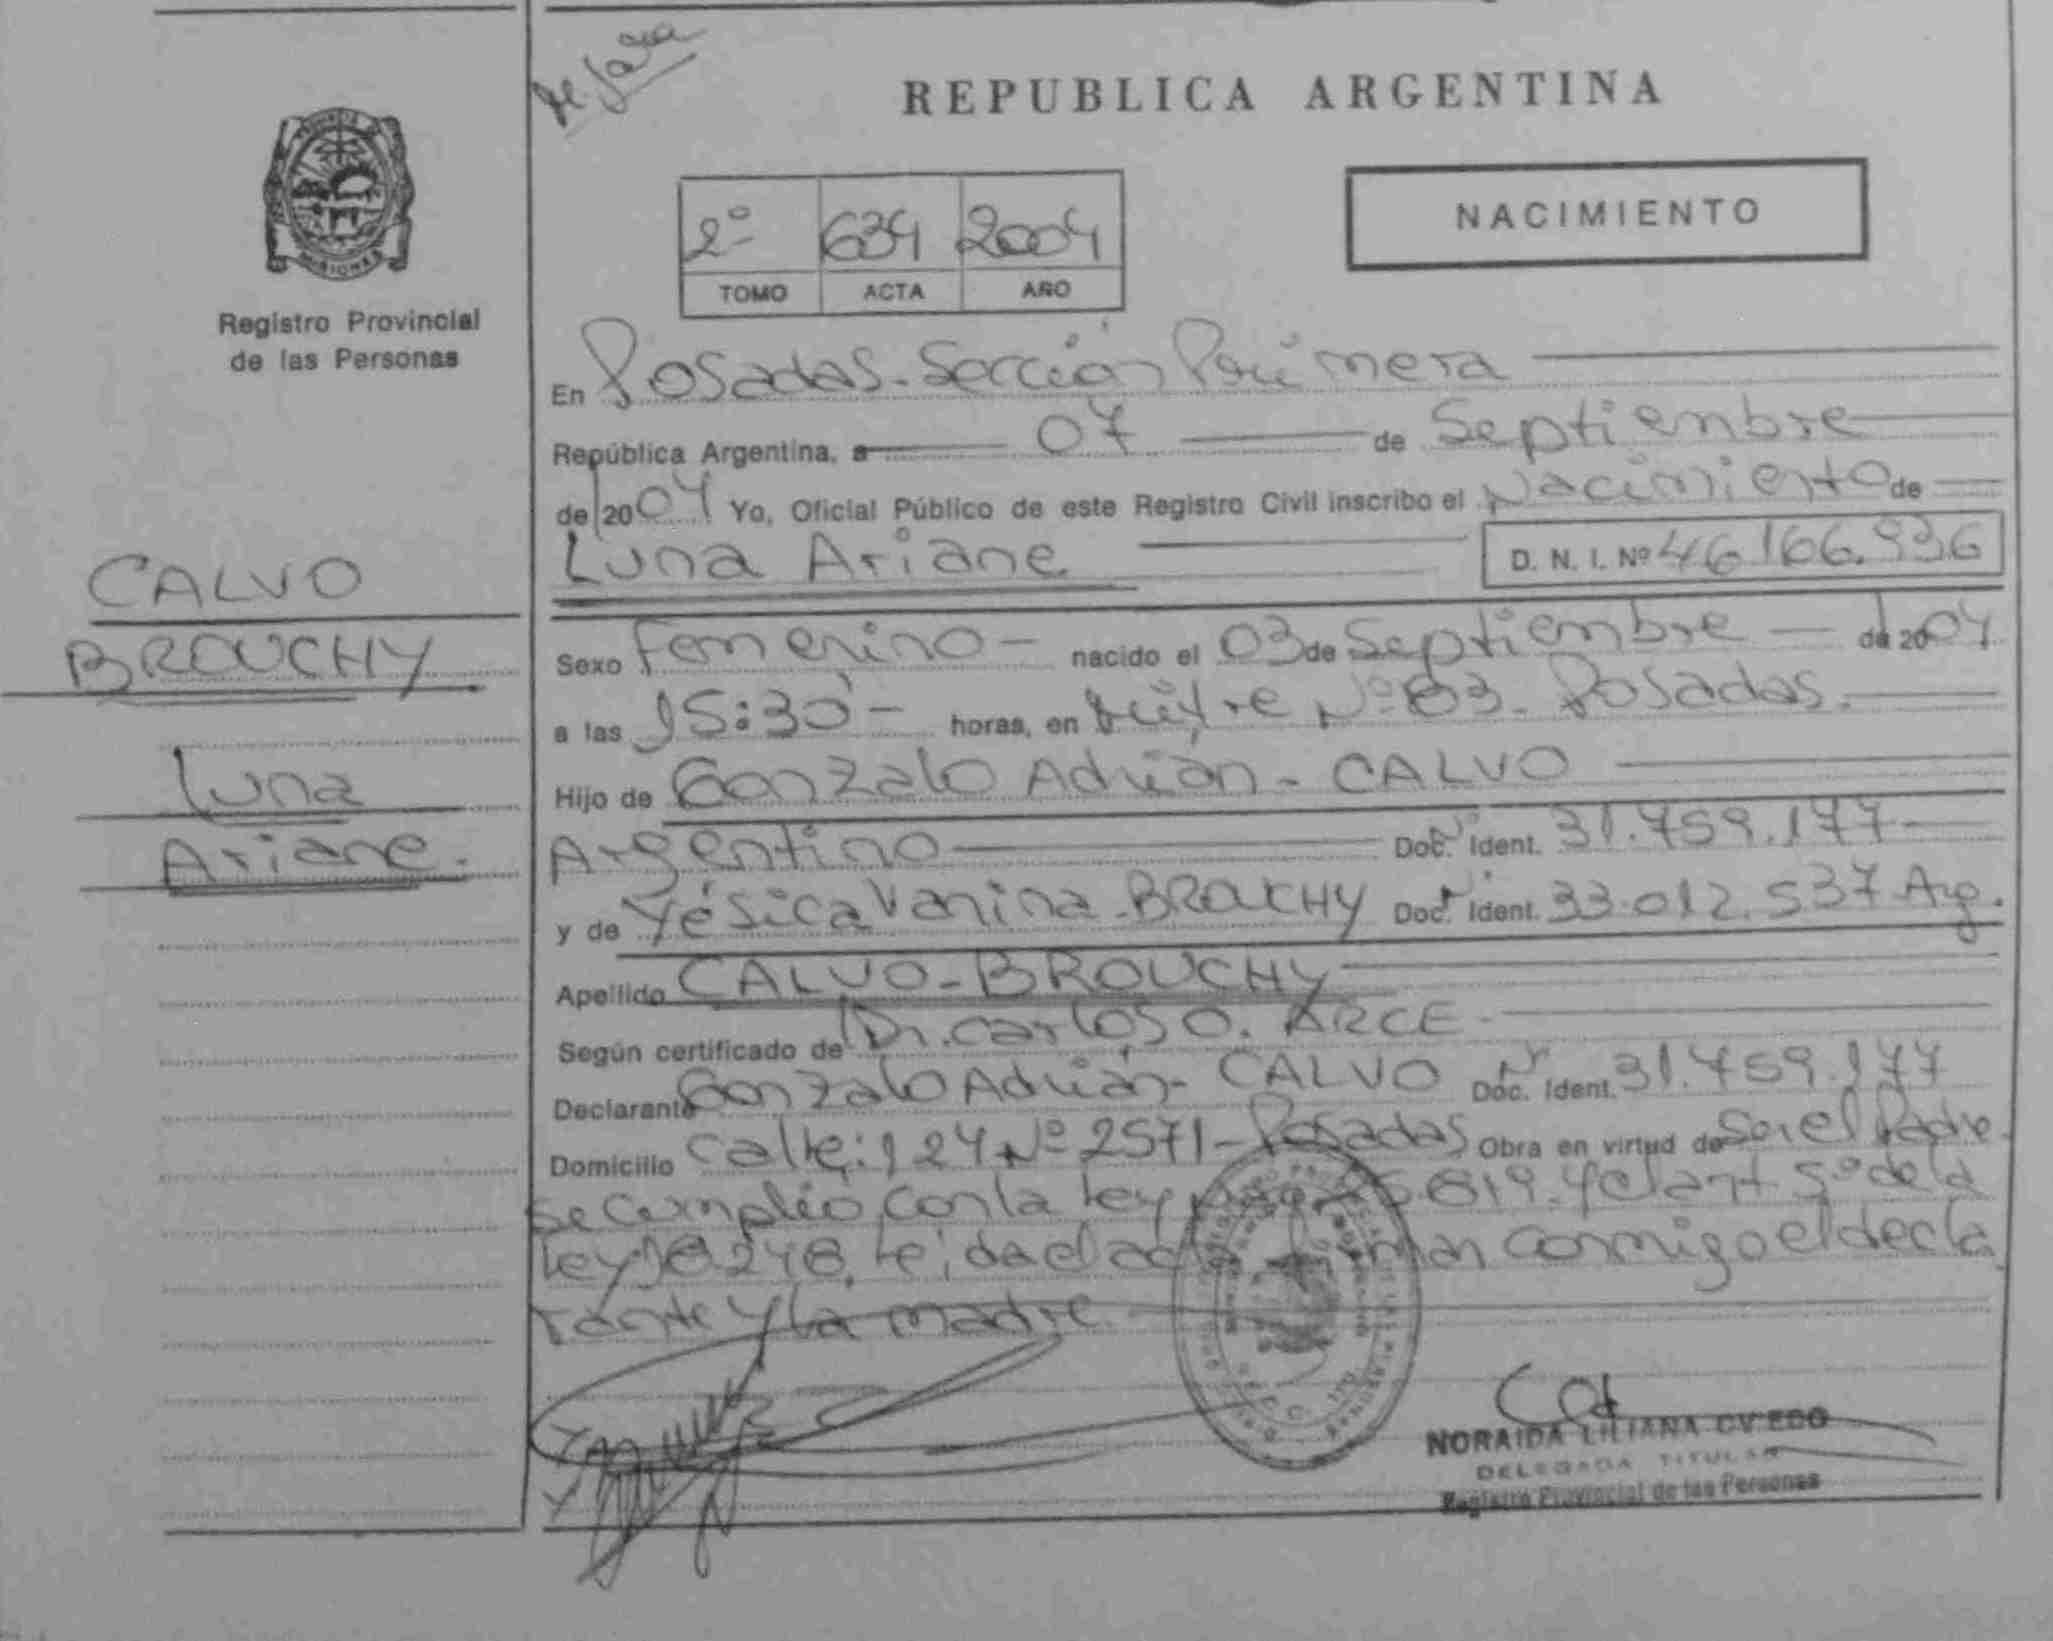 REPUBLICA ARGENTINA
NACIMIENTO
2º 634 2004
TOMO ACTA AÑO
MISIONES
Registro Provincial
de las Personas
CALVO
BROUCHY
Luna
Ariane.
En Posadas. Sección Primera
República Argentina, a 07 de Septiembre
de 2004 Yo, Oficial Público de este Registro Civil inscribo el Nacimiento de
Luna Ariane D. N. I. Nº 46.166.936
Sexo Femenino - nacido el 03 de Septiembre - de 2004
a las 15:30 - horas, en Nº 83. Posadas.
Hijo de Gonzalo Adrián - CALVO
Argentino Doc. Ident. 31.759.177
y de Yésica Vanina - BROUCHY Doc. Ident. 33.012.537 Arg.
Apellido CALVO - BROUCHY
Según certificado de Dr. Carlos O. ARCE -
Declarante Gonzalo Adrián - CALVO Doc. Ident. 31.759.177
Domicilio Calle: 124 Nº 2571 - Posadas Obra en virtud de Ser el Padre.
Se cumplió con la Ley y el art 5º de la
Ley 18248, leída el acta firman conmigo el decla
rante y la madre.
NORAIDA LILIANA OVIEDO
DELEGADA TITULAR
Registro Provincial de las Personas